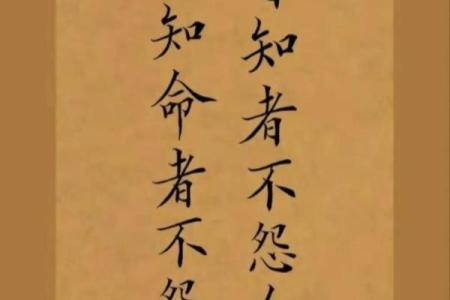 知者不怨
知命者不怨